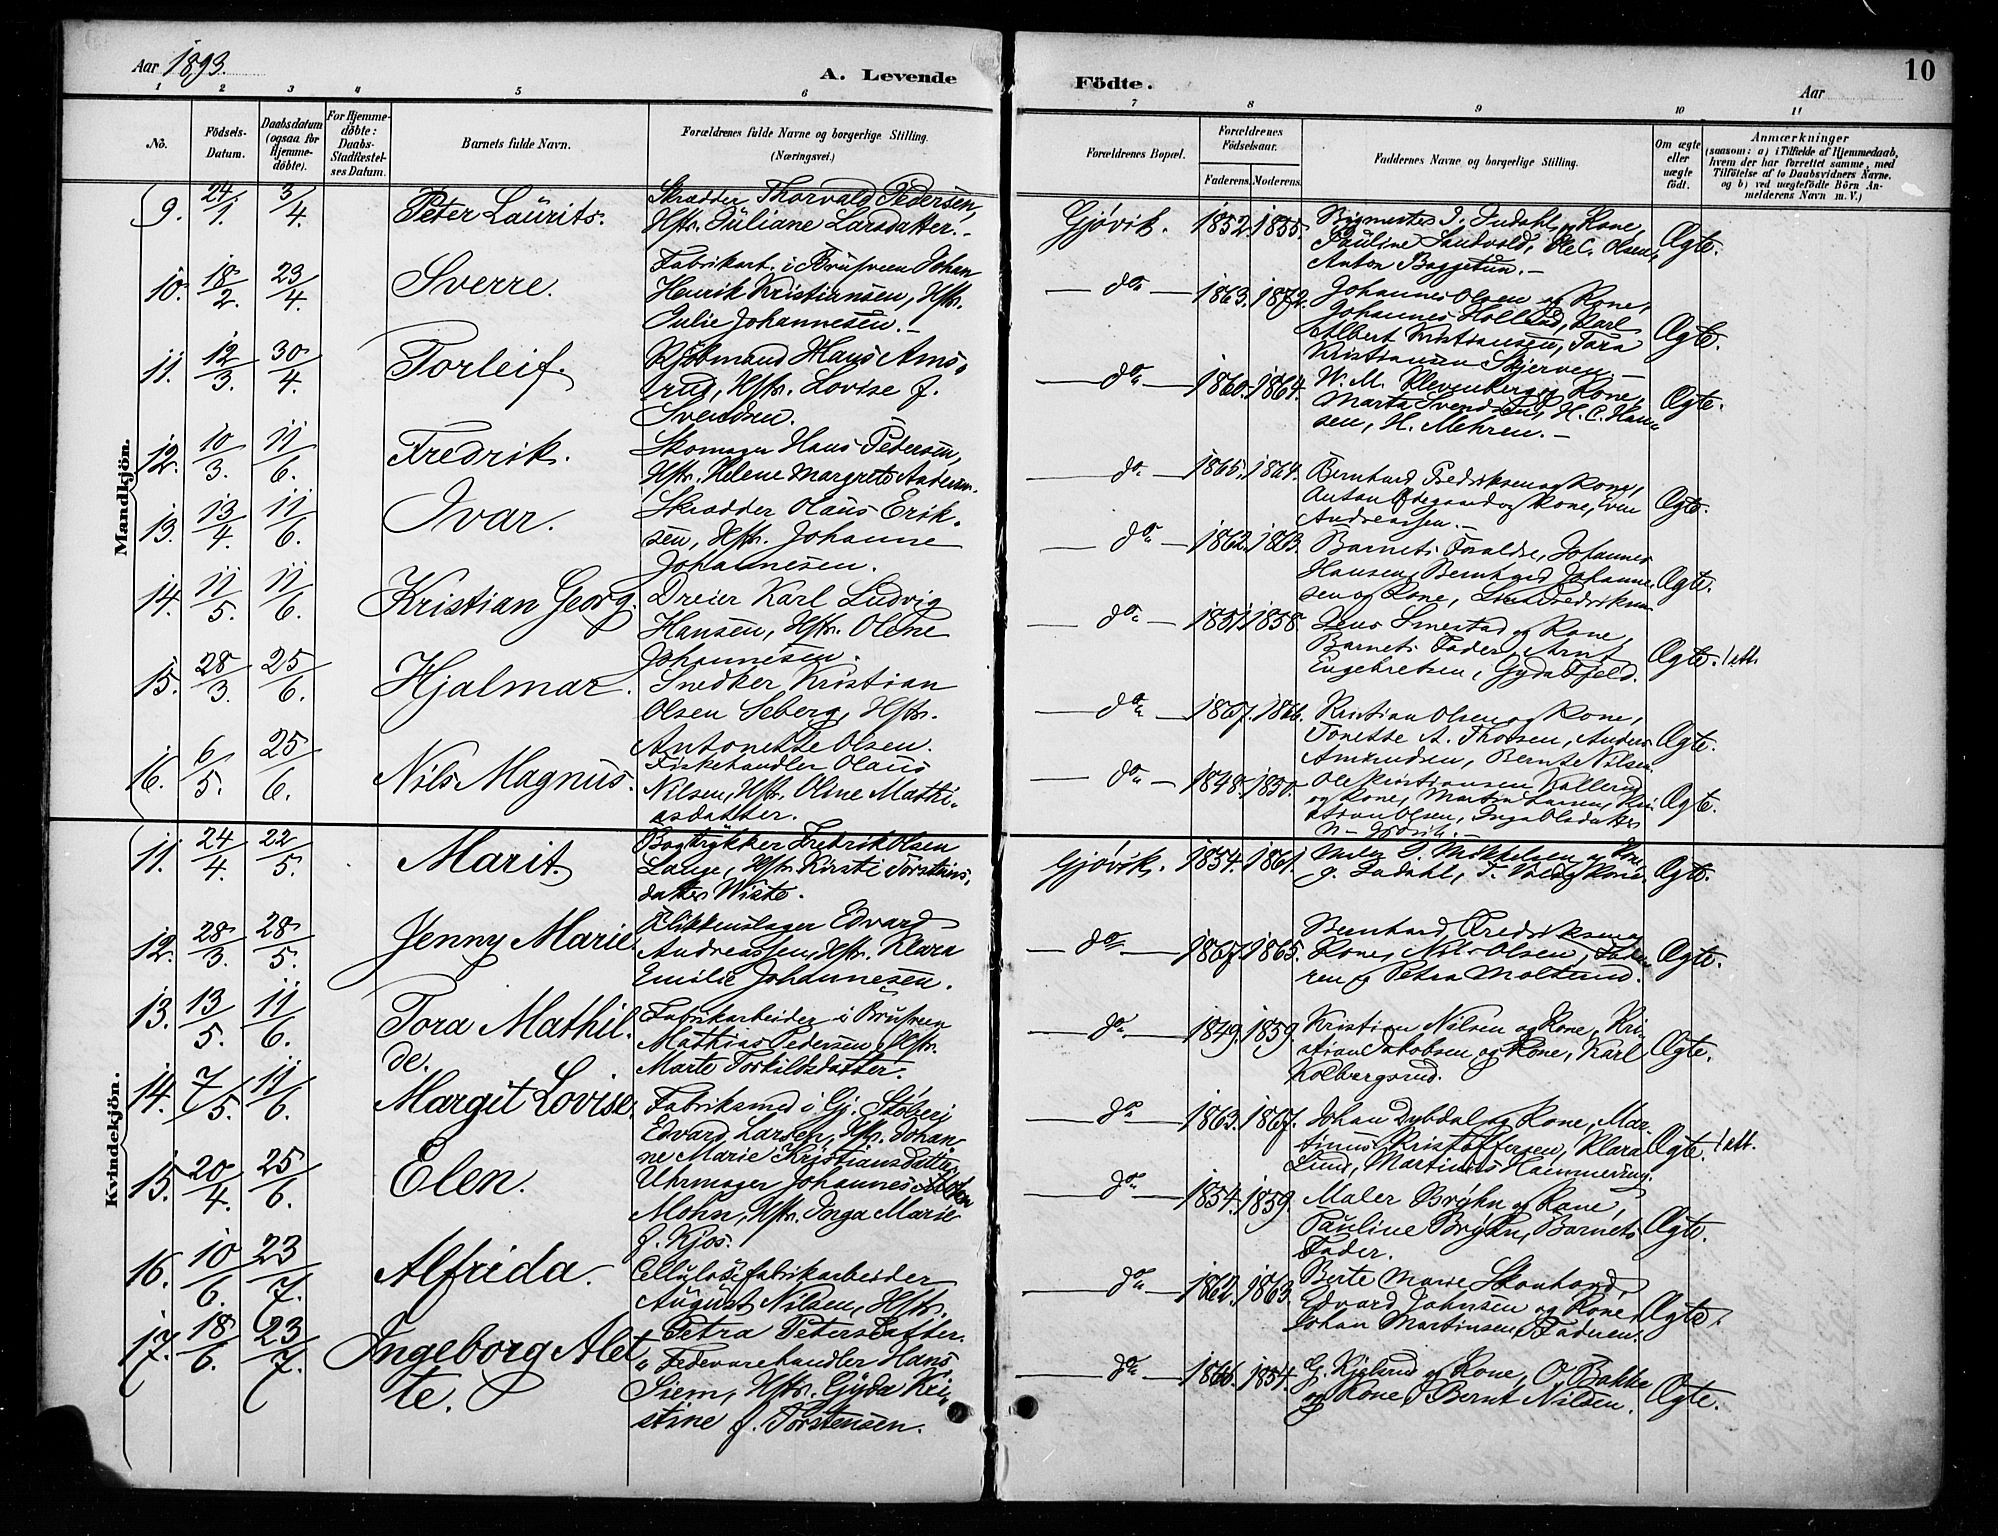 Aar 1893.
A. Levende
Födte.
Aar
10
1 2 3 4 5 6 7 8 9 10 11
No.
Födsels-Datum.
Daabsdatum (ogsaa for Hjemme-döbte).
For Hjemme-döbte: Daabs-Stadfæstel-ses Datum.
Barnets fulde Navn.
Forældrenes fulde Navne og borgerlige Stilling.
(Næringsvei.)
Forældrenes Bopæl.
Forældrenes Födselsaar.
Faderens. Moderens.
Faddernes Navne og borgerlige Stilling.
Om ægte eller uægte födt.
Anmærkninger
(saasom: a) i Tilfælde af Hjemmedaab,
hvem der har forrettet samme, med
Tilföielse af to Daabsvidners Navne.
og b) ved uægtefödte Börn An-
melderens Navn m. V.)
Mandkjön.
9. 24/1. 3/4 Peter Laurits.
Skrædder Thorvald Pedersen,
Hstr. Juliane Larsdatter.-
Gjøvik. 1852. 1855.
Pauline Sandvold, Ole C. Olsen,
Anton Baggetun.-
Ægte.
10. 18/2. 23/4. Sverre.
Fabrikarb. i Brufveen Johan
Henrik Kristiansen, Hstr.
Julie Johannesen.-
do 1863. 1872.
Johannes Olsen og Kone,
Albert Kristiansen, Tora
Kristiansen Skjerven.-
Ægte.
11. 12/3. 30/4. Torleif.
Kjöbmand Hans Ams-
rud, Hstr. Lovise f.
Svendsen.
do 1860. 1864.
W. M. Klevenberg og Kone,
Marta Svendsen, H. C. Han-
sen, H. Mehren.-
Ægte.
12. 10/3. 11/6. Fredrik.
Skomager Hans Pedersen,
Hstr. Helene Margrete Andersen.
do 1865. 1864.
Bernhard Fredriksen og Kone,
Anton Ødegaard og Kone, Even
Andreassen.-
Ægte.
13. 13/4. 11/6. Ivar.
Skrædder Olaus Erik-
sen, Hstr. Johanne
Johannesen.
do 1862. 1863.
Barnets Forældre, Johannes
Hansen, Bernhard Johanne-
sen og Kone,
Ægte.
14. 11/5. 11/6. Kristian Georg.
Dreier Karl Ludvig
Hansen, Hstr. Olene
Johannesen.
do 1851. 1858.
Jens Smestad og Kone,
Barnets Fader, Arnt
Engebretsen, Gyda Fjeld.
Ægte. 1 att.
15. 28/3. 25/6. Hjalmar.
Snedker Kristian
Olsen Seberg, Hstr.
Antonette Olsen.
do 1867. 1866.
Kristian Olsen og Kone,
Tonette A. Thorsen, Anders
Amundsen, Bernte Nilsen.
Ægte.
16. 6/5. 25/6. Nils Magnus.
Fiskehandler Olaus
Nilsen, Hstr. Oline Mathi-
asdatter.
do 1848. 1850.
Ole Kristiansen Kallerud
og Kone, Martin Larsen, Kri-
stian Olsen, Inga Olsdatter
Ægte.
Kvindekjön.
11. 24/4. 22/5. Marit.
Bogtrykker Fredrik Olsen
Lange, Hstr. Kirsti Torsteins-
datter Wiste.
Gjøvik. 1854. 1861.
Ægte.
12. 28/3. 28/5. Jenny Marie.
Blikkenslager Edvard
Andreassen, Hstr. Klara
Emilie Johannesen.
do 1867. 1865.
Bernhard Fredriksen og
Kone, Nils Olsen, Fade-
ren og Petra Moltund.
Ægte.
13. 13/5. 11/6. Tora Mathil-
de.
Fabrikarbeider i Brufveen
Mathias Pedersen, Hstr.
Marte Torkildsdatter.
do 1849. 1859.
Kristian Nilsen og Kone, Kri-
stian Jakobsen og Kone, Karl
Kolbergsrud.
Ægte.
14. 7/5. 11/6. Margit Lovise.
Fabriksmed i Gj. Stöberi
Edvard Larsen, Hstr. Johan-
ne Marie Kristiansdatter.
do 1863. 1867.
Johan Dybdal og Kone, Mar-
tinus Kristoffersen, Klara
Lund, Martinius Hammering.
Ægte. 1 att.
15. 20/4. 25/6. Elen.
Uhrmager Johannes
Mohn, Hstr. Inga Marie
f. Kjos.
do 1854. 1859.
Maler Bryhn og Kone,
Pauline Bryhn, Barnets
Fader.
Ægte.
16. 10/6. 23/7. Alfrida.
Cellulosefabrikarbeider
August Nilsen, Hstr.
Petra Petersdatter.
do 1862. 1863.
Berte Marie Skonhard,
Edvard Johnsen og Kone,
Johan Martinsen, Faderen.
Ægte.
17. 18/6. 23/7. Ingeborg Alet-
te.
Fedevarehandler Hans
Siem, Hstr. Gyda Kri-
stine f. Torstensen.
do 1866. 1854.
G. Kjelsrud og Kone, O. Bakke
og Kone, Bernt Nilsen.
Ægte.